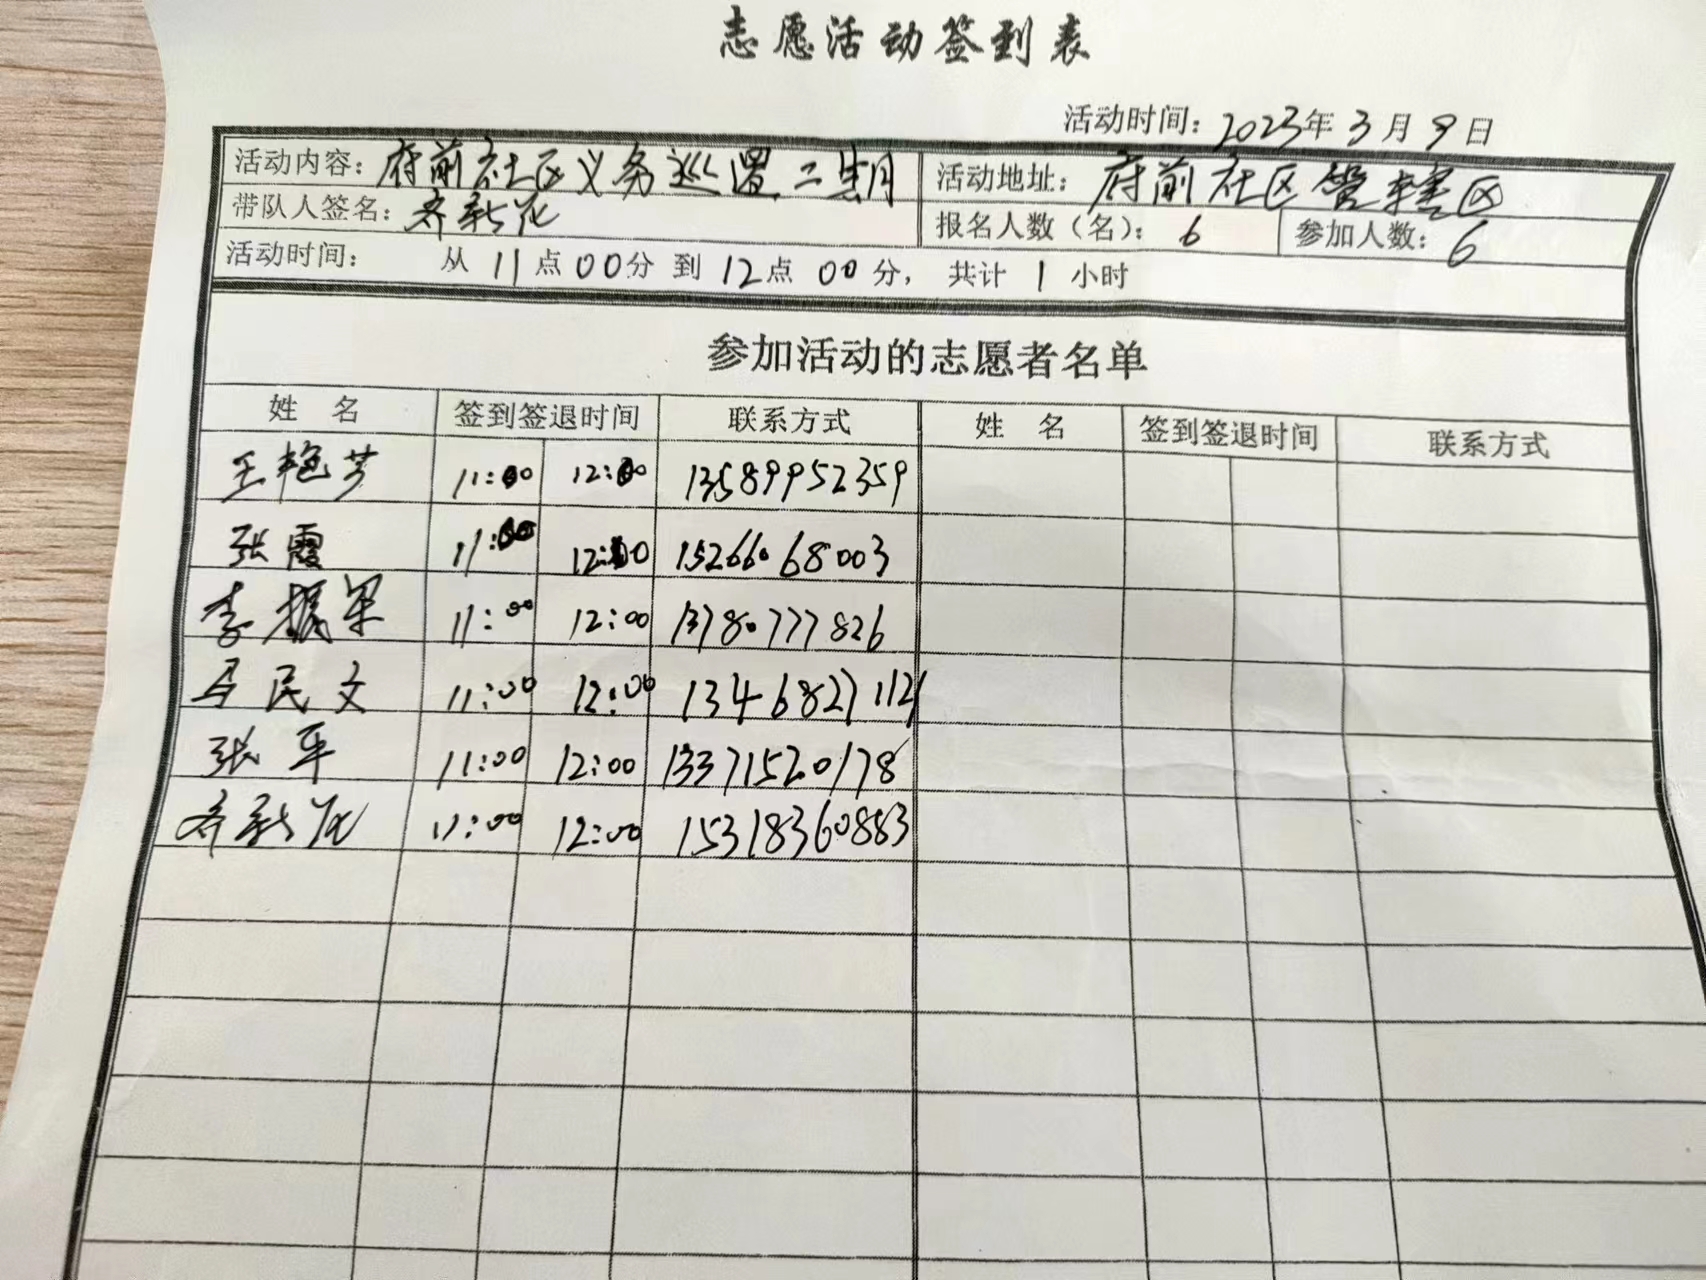 志愿活动签到表
活动时间：2023年3月9日
活动内容：府前社区义务巡逻二期 活动地址：府前社区管辖区
带队人签名：齐新花 报名人数（名）：6 参加人数：6
活动时间： 从11点00分到12点00分，共计1小时
参加活动的志愿者名单
姓 名 签到签退时间 联系方式 姓 名 签到签退时间 联系方式
王艳芳 11:00 12:00 13589952359
张霞 11:00 12:00 15266068003
李振军 11:00 12:00 13780777826
马民文 11:00 12:00 13468271121
张平 11:00 12:00 13371520178
齐新花 11:00 12:00 15318360883